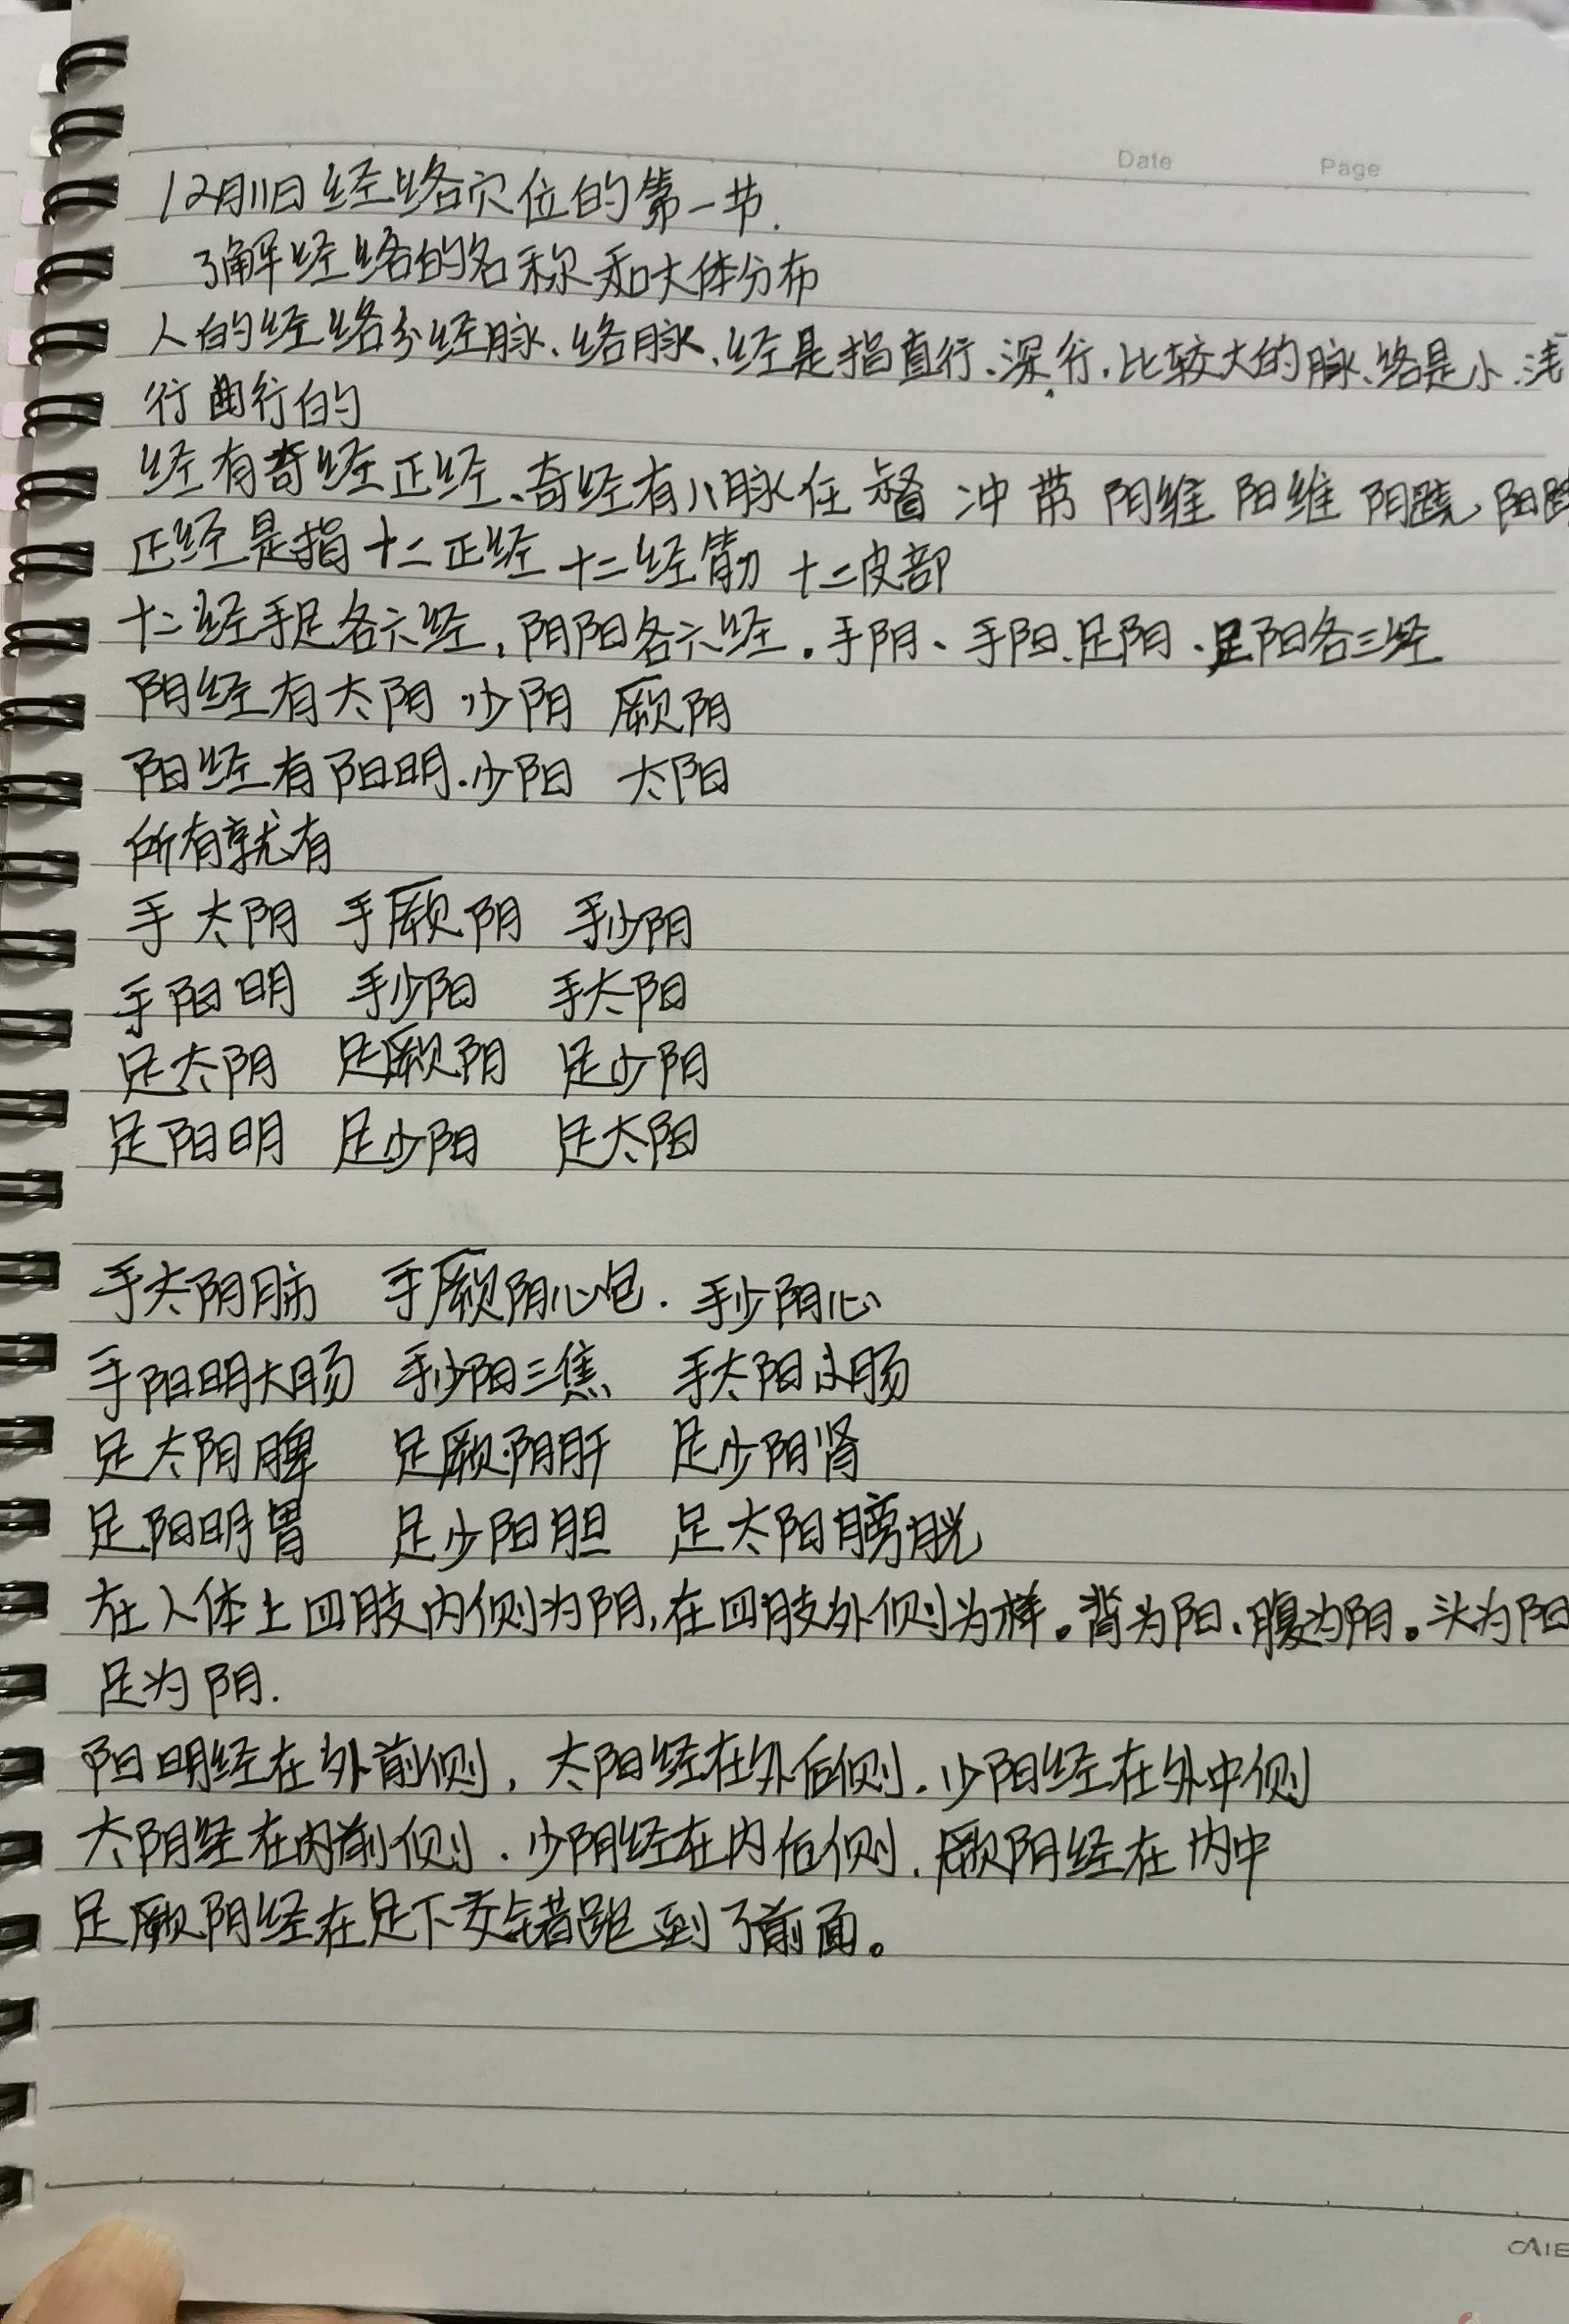 Date Page
12月11日经络穴位的第一节.
了解经络的名称和大体分布
人的经络分经脉、络脉、经是指直行、深行、比较大的脉、络是小、浅
行曲行的
经有奇经正经、奇经有八脉任 督 冲 带 阴维 阳维 阴跷、阳跷
正经是指十二正经 十二经筋 十二皮部
十二经手足各六经,阴阳各六经。手阴、手阳、足阳、足阳各三经
阴经有太阴 少阴 厥阴
阳经有阳明.少阳 太阳
所有就有
手太阴 手厥阴 手少阴
手阳明 手少阳 手太阳
足太阴 足厥阴 足少阴
足阳明 足少阳 足太阳
手太阴肺 手厥阴心包. 手少阴心
手阳明大肠 手少阳三焦 手太阳小肠
足太阴脾 足厥阴肝 足少阴肾
足阳明胃 足少阳胆 足太阳膀胱
在人体上四肢内侧为阴,在四肢外侧为样。背为阳、腹为阴。头为阳
足为阴.
阳明经在外前侧,太阳经在外后侧.少阳经在外中侧
太阴经在内前侧.少阴经在内后侧.厥阴经在内中
足厥阴经在足下交错跑到了前面。